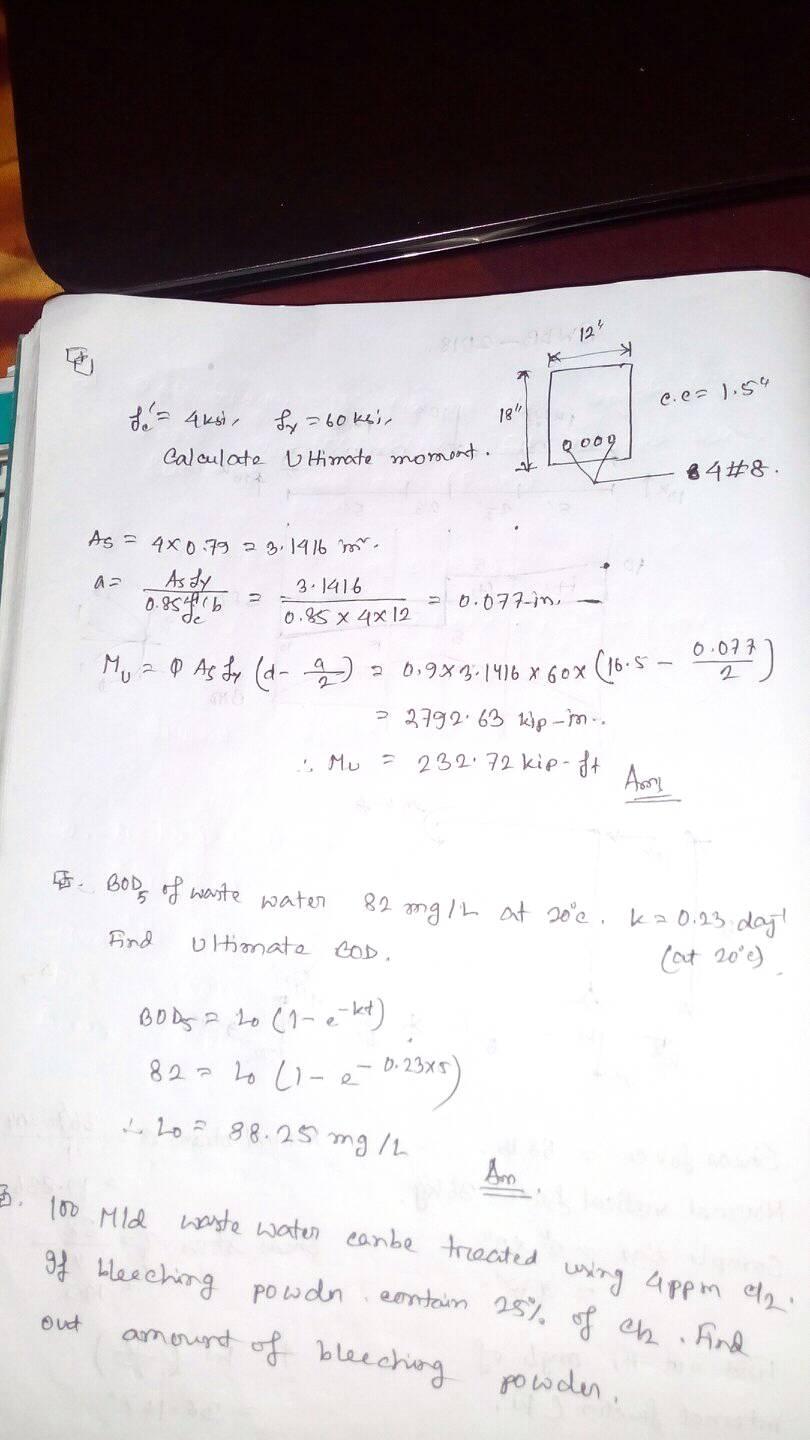 12"
f_c' = 4 ksi, f_y = 60 ksi,
18"
c.c = 1.5"
Calculate Ultimate moment.
4#8.
As = 4 × 0.79 = 3.1416 in².
a = As fy / 0.85 fc' b = 3.1416 / 0.85 × 4 × 12 = 0.077 in.
Mu = Φ As fy (d - a/2) = 0.9 × 3.1416 × 60 × (16.5 - 0.077/2)
= 2792.63 kip-in.
∴ Mu = 232.72 kip-ft
Ans
BOD5 of waste water 82 mg/L at 20°c. k = 0.23 day-1
Find Ultimate BOD. (at 20°c)
BOD5 = Lo (1 - e^-kt)
82 = Lo (1 - e^-0.23×5)
∴ Lo = 98.25 mg/L
Am.
100 Mld waste water canbe treated using 4ppm cl2.
If bleeching powdn contain 25% of ch2. Find
out amount of bleeching powder.